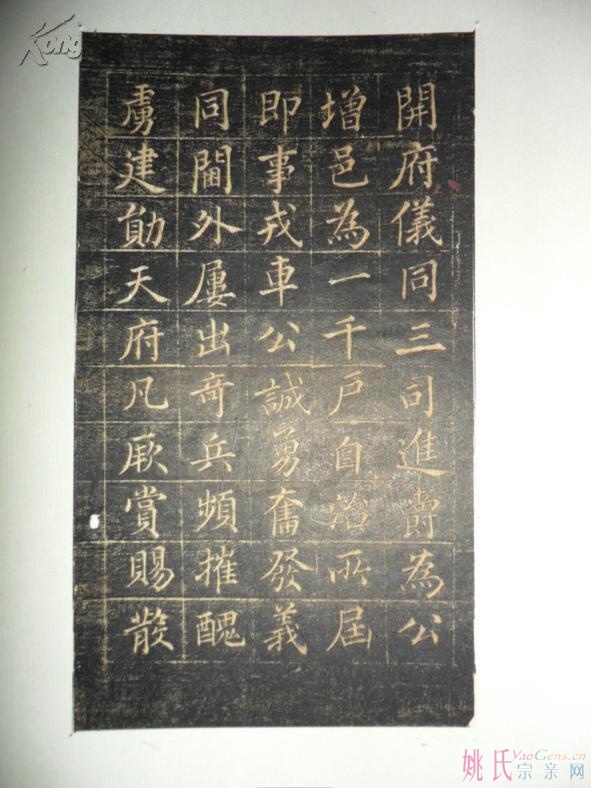 開府儀同三司進爵為公
增邑為一千戶自始所屆
即事戎車公誠勇奮發義
同閫外屢出奇兵頻摧醜
虜建勛天府凡厥賞賜散
Kong
YaoGens.cn
姚氏宗亲网